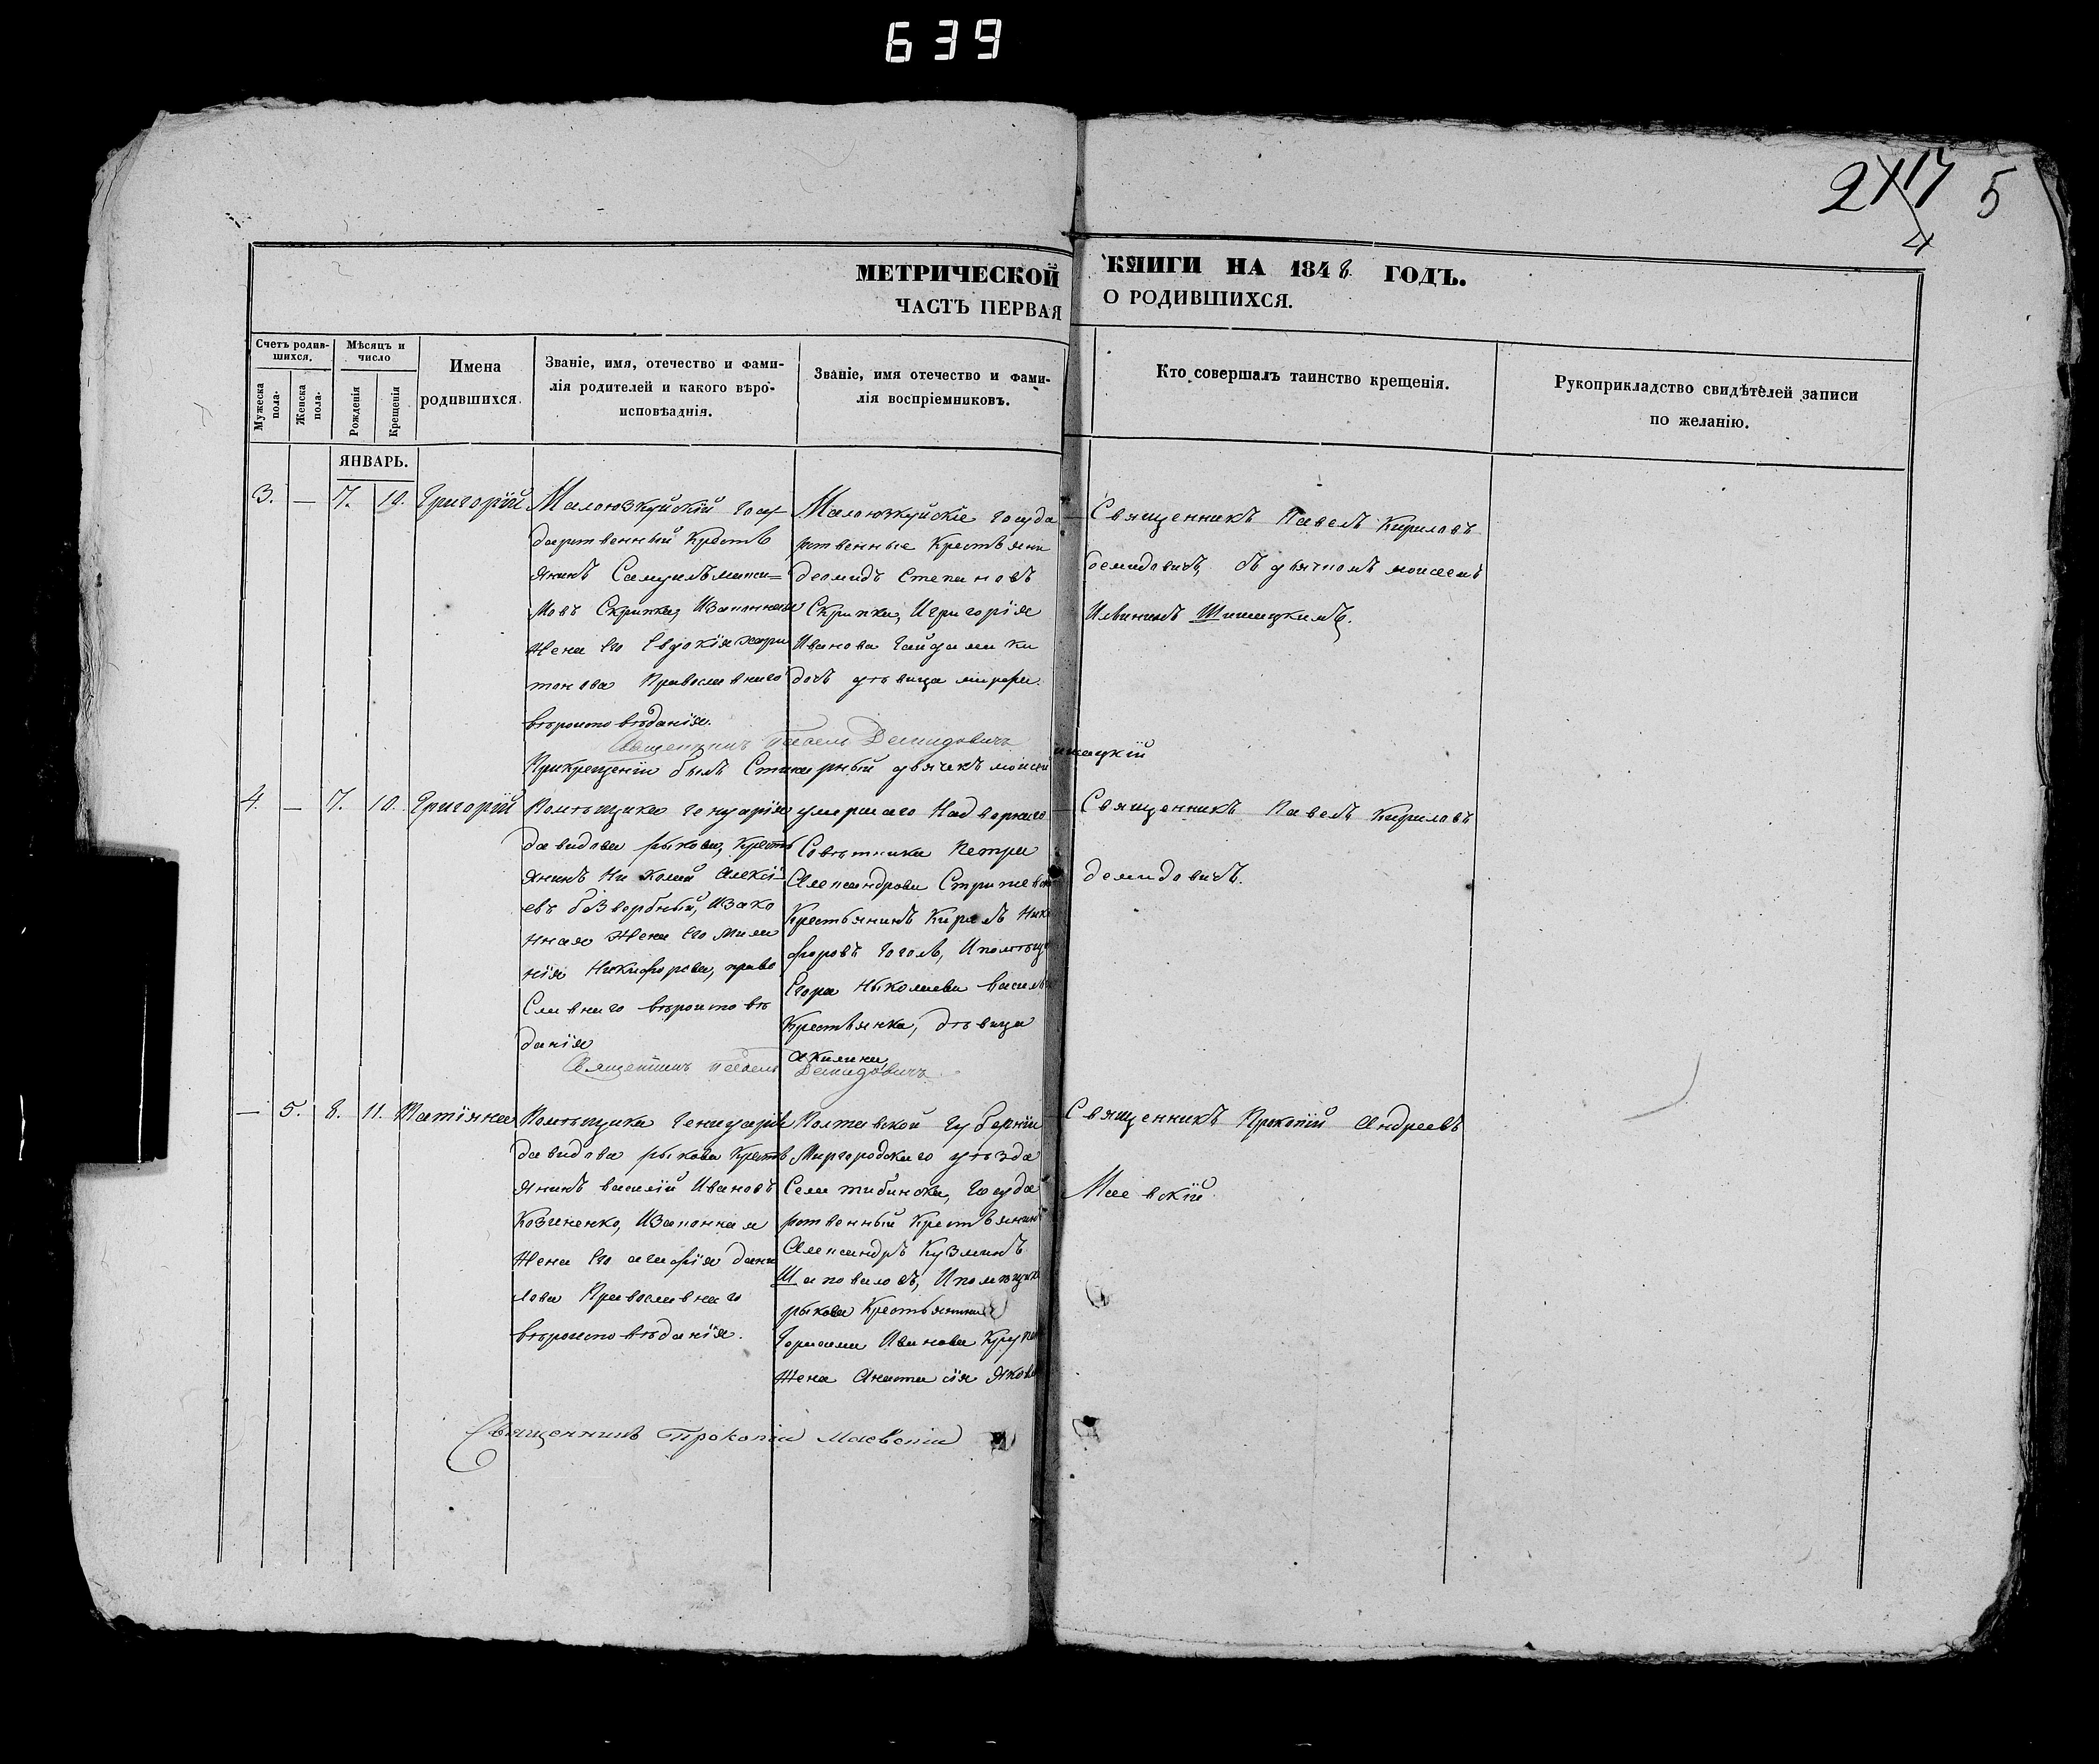 639
217 5
4
МЕТРИЧЕСКОЙ КНИГИ НА 1848 ГОДЪ.
ЧАСТЬ ПЕРВАЯ О РОДИВШИХСЯ.
Счетъ родившихся.
Мужеска пола.
Женска пола.
Мѣсяцъ и число
Рожденія
Крещенія
Имена родившихся.
Званіе, имя, отечество и фами-
лія родителей и какого вѣро-
исповѣаднія.
Званіе, имя отечество и фами-
лія воспріемниковъ.
Кто совершалъ таинство крещенія.
Рукоприкладство свидѣтелей записи
по желанію.
ЯНВАРЬ.
3. — 7. 10. Григорій
Малоюзкуйскій госу-
дарственный Кресть
янинъ Самуилъ макси=
мовъ Скрипка, Изаконная
Жена его Евдокія хари
тонова Православнаго
вѣроисповѣданія.
Малоюзкуйскіе госуда
рственные Крестьяни
деомидъ Степановъ
Скрипка, Игригорія
Иванова гайдамаки
дочь дѣвица марфа.
Священникъ Павелъ Кириловъ
демидовичъ, съ дьячкомъ моисеемъ
Ивинымъ Шишацкимъ.
Священникъ Павелъ Демидовичъ
Прикрещеніи былъ Стихарный дьячекъ моисей шишацкій
4. — 7. 10. Григорій
Помѣщика генуарія
давидова рыкова, Кресть
янинъ Николай Алексі-
евъ безвербный, Изако
нная Жена его Мила
нія Никифорова, право
Славнаго вѣроисповѣ
данія
умершаго Надворнаго
Совѣтника Петра
Александрова Стрижевск
Крестьянинъ Кирилъ Ники
форовъ гоголь, Ипомѣщи
Егора Николаева василь
Крестьянка, дѣвица
Акилина
Священникъ Павелъ Кириловъ
демидовичъ.
Священникъ Павелъ Демидовичъ
— 5. 8. 11. Татіяна
Помѣщика генуарія
давидова рыкова Кресть
янинъ василій Ивановъ
Козиненко, Изаконная
Жена его агафія дани
лова Православнаго
вѣроисповѣданія.
Полтавской губерніи
Миргородскаго уѣзда
Села госуда
рственный Крестьянинъ
Александръ Кузминъ
Шаповаловъ, Ипомѣщика
рыкова Крестьянина
герасима Иванова
Жена Анастасія Яковл
Священникъ Прокопій Андреевъ
Маевскій
Священникъ Прокопій Маевскій